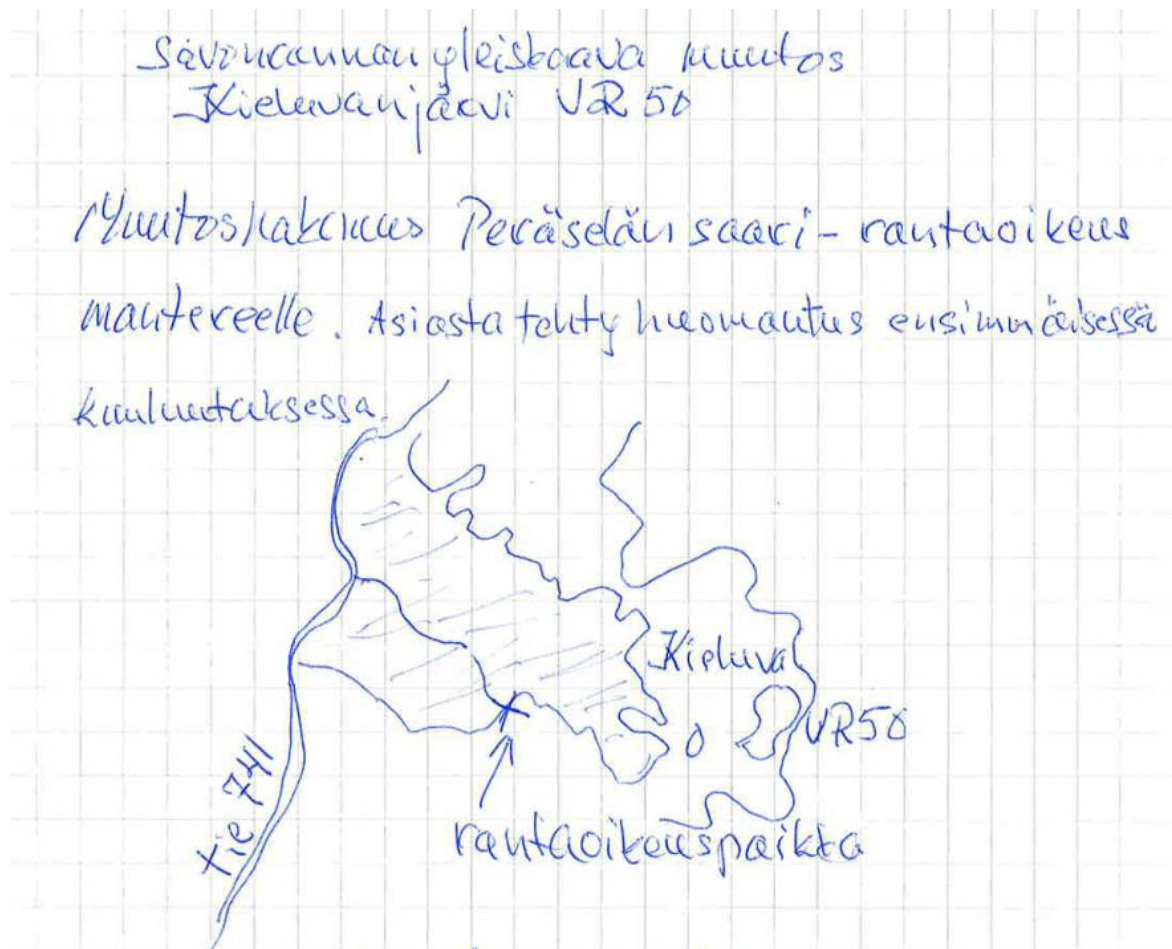 Savonrannan yleiskaava muutos
Kieluvanjärvi VR 50
Muutoshakemus Peräselän saari - rantaoikeus
mantereelle. Asiasta tehty huomautus ensimmäisessä
kuulutuksessa.
Kieluva
VR50
tie 741
rantaoikeuspaikka